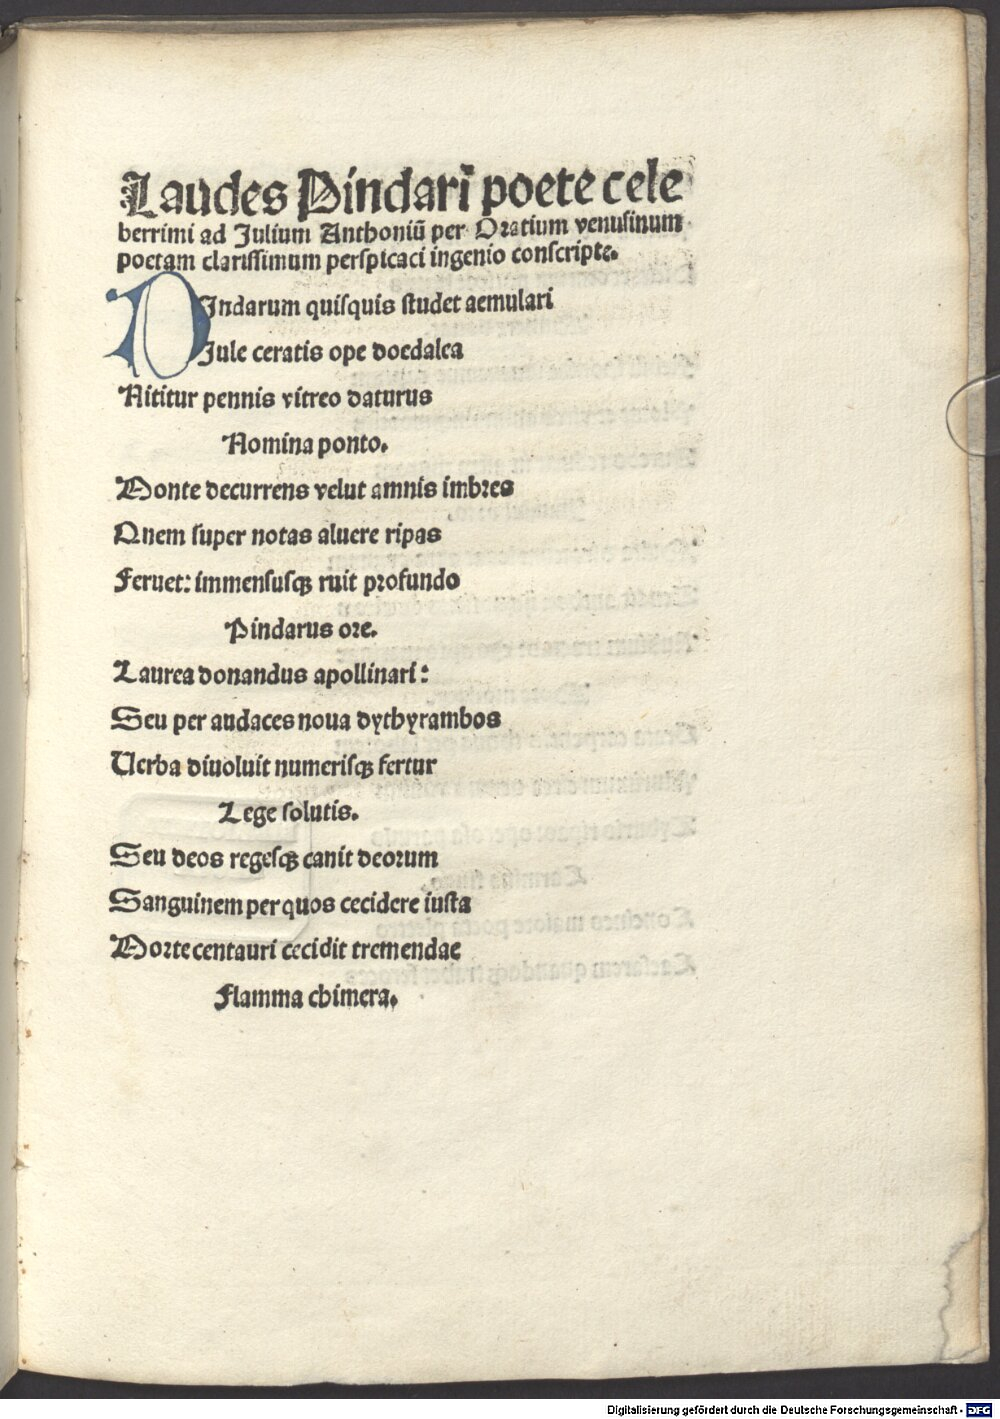 Laudes Pindari poete cele
berrimi ad Julium Anthoniū per Oratium venusinum
poetam clarissimum perspicaci ingenio conscripte.
PIndarum quisquis studet aemulari
Jule ceratis ope doedalea
Nititur pennis vitreo daturus
Nomina ponto.
Monte decurrens velut amnis imbres
Quem super notas aluere ripas
Feruet: immensusqꝫ ruit profundo
Pindarus ore.
Laurea donandus apollinari:
Seu per audaces noua dythyrambos
Uerba diuoluit numerisqꝫ fertur
Lege solutis.
Seu deos regesqꝫ canit deorum
Sanguinem per quos cecidere iusta
Morte centauri cecidit tremendae
Flamma chimera.
Digitalisierung gefördert durch die Deutsche Forschungsgemeinschaft - DFG